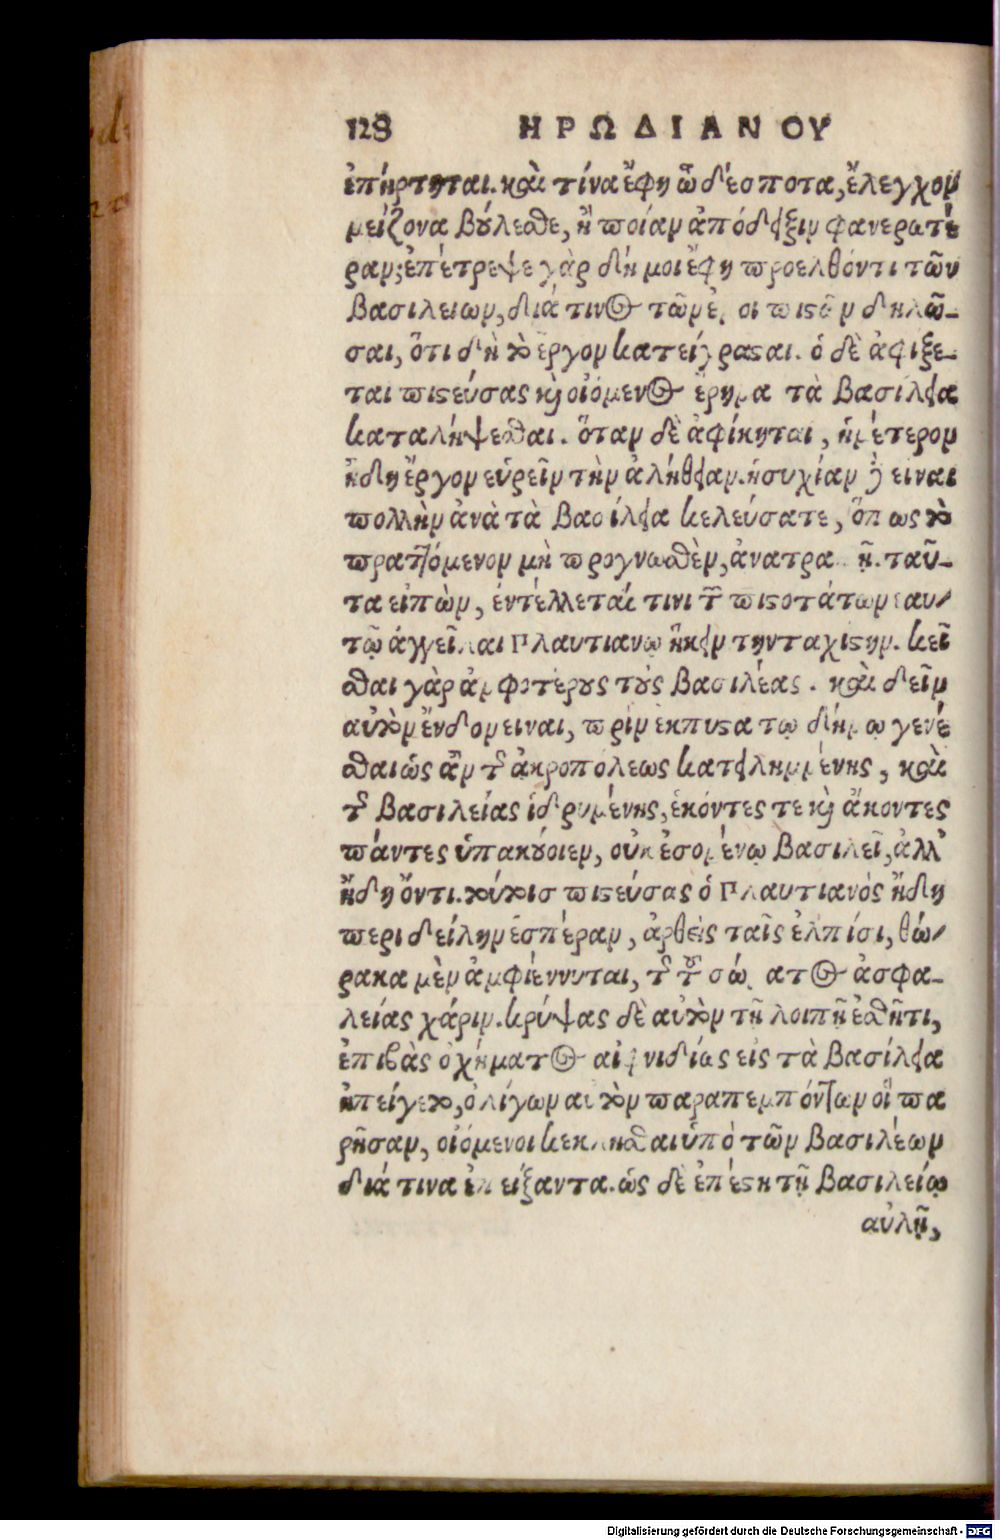 128 ΗΡΩΔΙΑΝΟΥ
ἐπήρτηται. καὶ τίνα ἔφη ὦ δέσποτα, ἔλεγχον
μείζονα βούλεσθε, ἢ ποίαν ἀπόδειξιν φανερωτέ
ραν; ἐπέτρεψε γὰρ δή μοι ἔφη προελθόντι τῶν
βασιλείων, διά τινος τῶν οι πιστῶν δηλῶ-
σαι, ὅτι δὴ τὸ ἔργον κατείργασαι. ὁ δὲ ἀφίξε-
ται πιστεύσας καὶ οἰόμενος ἔρημα τὰ βασίλεια
καταλήψεσθαι. ὅταν δὲ ἀφίκηται, ἡμέτερον
ἤδη ἔργον εὑρεῖν τὴν ἀλήθειαν. ἡσυχίαν εἶναι
πολλὴν ἀνὰ τὰ βασίλεια κελεύσατε, ὅπως τὸ
πραττόμενον μὴ προγνωσθὲν, ἀνατραπῇ. ταῦ-
τα εἰπὼν, ἐντέλλεταί τινι τῶν πιστοτάτων ἑαυ-
τῷ ἀγγεῖλαι Πλαυτιανῷ ἥκειν τὴν ταχίστην. κεῖ
σθαι γὰρ ἀμφοτέρους τοὺς βασιλέας. καὶ δεῖν
αὐτὸν ἔνδον εἶναι, πρὶν ἔκπυστα τῷ δήμῳ γενέ
σθαι ὡς ἂν τῆς ἀκροπόλεως κατειλημμένης, καὶ
τῆς βασιλείας ἱδρυμένης, ἑκόντες τε καὶ ἄκοντες
πάντες ὑπακούοιεν, οὐκ ἐσομένῳ βασιλεῖ, ἀλλ'
ἤδη ὄντι. τούτοις πιστεύσας ὁ Πλαυτιανός ἤδη
περὶ δείλην ἑσπέραν, ἀρθεὶς ταῖς ἐλπίσι, θώ-
ρακα μὲν ἀμφιέννυται, τῆς τοῦ σώματος ἀσφα-
λείας χάριν. κρύψας δὲ αὐτὸν τῇ λοιπῇ ἐσθῆτι,
ἐπιβὰς ὀχήματος αἰφνιδίως εἰς τὰ βασίλεια
ἠπείγετο, ὀλίγων αὐτὸν παραπεμπόντων οἳ πα
ρῆσαν, οἰόμενοι κεκλῆσθαι ὑπὸ τῶν βασιλέων
διά τινα ἐπείξαντα. ὡς δὲ ἐπέστη τῇ βασιλείῳ
αὐλῇ,
Digitalisierung gefördert durch die Deutsche Forschungsgemeinschaft - DFG